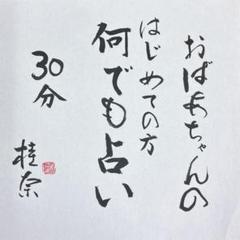 おばあちゃんの
はじめての方
何でも占い
30分
桂奈